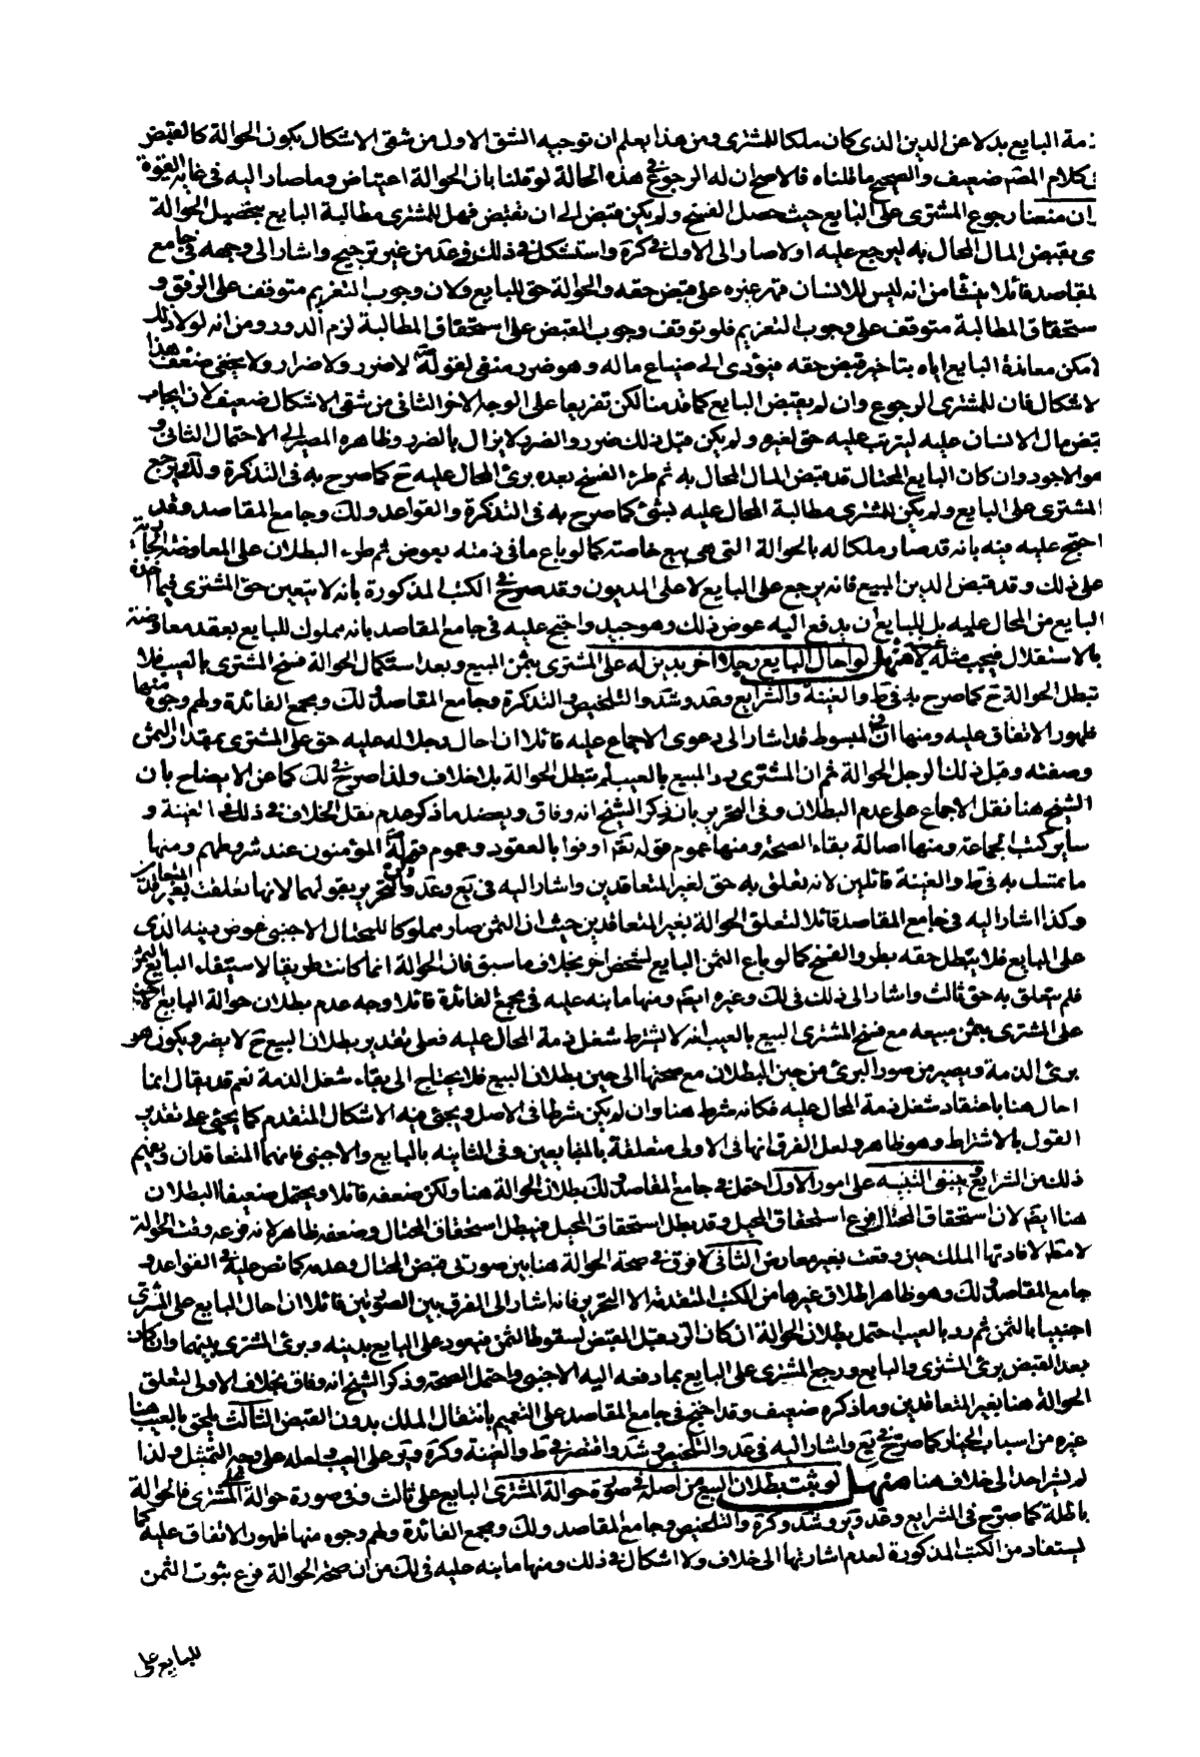 ذمة البايع بدلا عن الدين الذى كان ملكا للمشترى ومن هذا يعلم ان توجيه الشق الاول من شقى الاشكال بكون الحوالة كالقبض
فى كلام المصنف ضعيف والصحيح ما قلناه فالاصح ان له الرجوع فى هذه الحالة لو قلنا بان الحوالة اعتياض وما صار اليه فى غاية القوة
وان منعنا رجوع المشترى على البايع حيث حصل الفسخ ولم يكن قبض الى ان يقبض فهل للمشترى مطالبة البايع بتحصيل الحوالة
اى بقبض المال المحال به ليرجع عليه اولا صار الى الاول فى كرة واستشكل فى ذلك فى عد من غير ترجيح واشار الى وجهه فى جامع
المقاصد قائلا ينشأ من انه ليس للانسان قهر غيره على قبض حقه والحوالة حق للبايع ولان وجوب التغريم متوقف على الرفق و
ستحقاق المطالبة متوقف على وجوب التغريم فلو توقف وجوب القبض على استحقاق المطالبة لزم الدور ومن انه لولا ذلك
لامكن معاندة البايع اياه بتاخير قبض حقه فيؤدى الى ضياع ماله وهو ضرر منفى لقوله لا ضرر ولا ضرار ولا يخفى ضعف هذا
لاشكال فان للمشترى الرجوع وان لم يقبض البايع كما قدمنا لكن تفريعا على الوجه الاخر الثانى من شقى الاشكال ضعيف لان ايجاب
قبض مال الانسان عليه ليترتب عليه حق لغيره ولم يكن قبل ذلك ضرر والضرر لا يزال بالضرر وظاهره المصير الى الاحتمال الثانى و
هو الاجود وان كان البايع المحتال قد قبض المال المحال به ثم طرء الفسخ بعده برئ المحال عليه ح كما صرح به فى التذكرة ولك ويرجع
المشترى على البايع ولم يكن للمشترى مطالبة المحال عليه بشئ كما صرح به فى التذكرة والقواعد ولك وجامع المقاصد وقد
احتج عليه فيه بانه قد صار ملكا له بالحوالة التى هى بيع خاصته كما لو باع ما فى ذمته بعوض ثم طرء البطلان على المعاوضة الجارية
على ذلك وقد قبض الدين المبيع فانه يرجع على البايع لا على المديون وقد صرح فى الكتب المذكورة بانه لا يتعين حق المشترى فيما اخذه
البايع من المحال عليه بل للبايع ان يدفع اليه عوض ذلك وهو جيد واحتج عليه فى جامع المقاصد بانه مملوك للبايع بعقد معاوضة
بالاستقلال فيجب مثله لا هو منها لو احال البايع رجلا اخر بدين له على المشترى بثمن المبيع وبعد استكمال الحوالة فسخ المشترى بالعيب فلا
تبطل الحوالة ح كما صرح به فى ط والغنية والشرايع وعد وشد والتلخيص والتذكرة وجامع المقاصد ولك ومجمع الفائدة ولهم وجوه منها
ظهور الاتفاق عليه ومنها ان فى المبسوط قد اشار الى دعوى الاجماع عليه قائلا ان احال رجلا له عليه حق على المشترى بمقدار الثمن
وصفته وقبل ذلك الرجل الحوالة ثم ان المشترى رد المبيع بالعيب لم تبطل الحوالة بلا خلاف ولقد صرح فى لك كما عن الايضاح بان
الشيخ هنا نقل الاجماع على عدم البطلان وفى التحرير بان ذكر الشيخ انه وفاق ويعضد ما ذكر عدم نقل الخلاف فى ذلك فى الغنية و
سائر كتب الجماعة ومنها اصالة بقاء الصحة ومنها عموم قوله تعالى اوفوا بالعقود وعموم قوله المؤمنون عند شروطهم ومنها
ما تمسك به فى ط والغنية قائلين لانه تعلق به حق لغير المتعاقدين واشار اليه فى يع وعد والتحرير بقولهما لانها تعلقت بغير المتعاقدين
وكذا اشار اليه فى جامع المقاصد قائلا لتعلق الحوالة بغير المتعاقدين حيث ان الثمن صار مملوكا للمحتال الاجنبى عوض دينه الذى
على البايع فلا يبطل حقه بطرو الفسخ كما لو باع الثمن البايع لشخص اخر بخلاف ما سبق فان الحوالة انما كانت طريقا لاستيفاء البايع الثمن
فلم يتعلق به حق ثالث واشار الى ذلك فى لك وغيره ايضا ومنها ما نبه عليه فى مجمع الفائدة قائلا وجه عدم بطلان حوالة البايع الاجنبى
على المشترى بثمن مبيعه مع فسخ المشترى البيع بالعيب انه لا يشترط شغل ذمة المحال عليه فعلى تقدير بطلان البيع ح لا يضر ويكون هو
برئ الذمة ويصير من صور البرئ من حين البطلان مع صحتها الى حين بطلان البيع فلا يحتاج الى بقاء شغل الذمة نعم قد يقال انما
احال هنا باعتقاد شغل ذمة المحال عليه فكانه شرط هنا وان لم يكن شرطا فى الاصل ويجئ فيه الاشكال المتقدم كما يجئ على تقدير
القول بالاشتراط وهو ظاهر ولعل الفرق انها فى الاولى متعلقة بالمتبايعين وفى الثانية بالبايع والاجنبى فانهما المتعاقدان ويفهم
ذلك من الشرايع وينبغى التنبيه على امور الاول احتمل فى جامع المقاصد ولك بطلان الحوالة هنا ولكن ضعفه قائلا ويحتمل ضعيفا البطلان
هنا ايضا لان استحقاق المحتال فرع استحقاق المحيل وقد بطل استحقاق المحيل فيبطل استحقاق المحتال وضعفه ظاهر لانه فرعه وقت الحوالة
لا مطلقا لافادتها الملك حين وقعت بغير معارض الثانى لا فرق فى صحة الحوالة هنا بين صورتى قبض المحتال وعدمه كما نص عليه فى القواعد و
جامع المقاصد ولك وهو ظاهر اطلاق غيرها من الكتب المتقدمة الا التحرير فانه اشار الى الفرق بين الصورتين قائلا ان احال البايع على المشترى
اجنبيا بالثمن ثم رد بالعيب احتمل بطلان الحوالة ان كان الرد قبل القبض لسقوط الثمن فيعود على البايع بدينه وبرئ المشترى بينهما وان كان
بعد القبض برئ المشترى والبايع ورجع المشترى على البايع بما دفعه اليه الاجنبى واحتمل الصحة وذكر الشيخ انه وفاق بخلاف الاولى لتعلق
الحوالة هنا بغير المتعاقدين وما ذكره ضعيف وقد احتج فى جامع المقاصد على التعميم بانتقال الملك بدون القبض الثالث يلحق بالعيب هنا
غيره من اسباب الخيار كما صرح فى يع واشار اليه فى عد والتلخيص وشد واقتصر فى ط والغنية وكرة وير على العيب ولعله على وجه التمثيل ولذا
لم يشر احد الى خلاف هنا منها لو ثبت بطلان البيع من اصله فى صورة حوالة المشترى البايع على ثالث وفى صورة حوالة على المشترى فالحوالة
باطلة كما صرح فى الشرايع وعد وير وشد وكرة والتلخيص وجامع المقاصد ولك ومجمع الفائدة ولهم وجوه منها ظهور الاتفاق عليه كما
يستفاد من الكتب المذكورة لعدم اشارتها الى خلاف ولا اشكال فى ذلك ومنها ما نبه عليه فى لك من ان صحة الحوالة فرع ثبوت الثمن
للبايع على